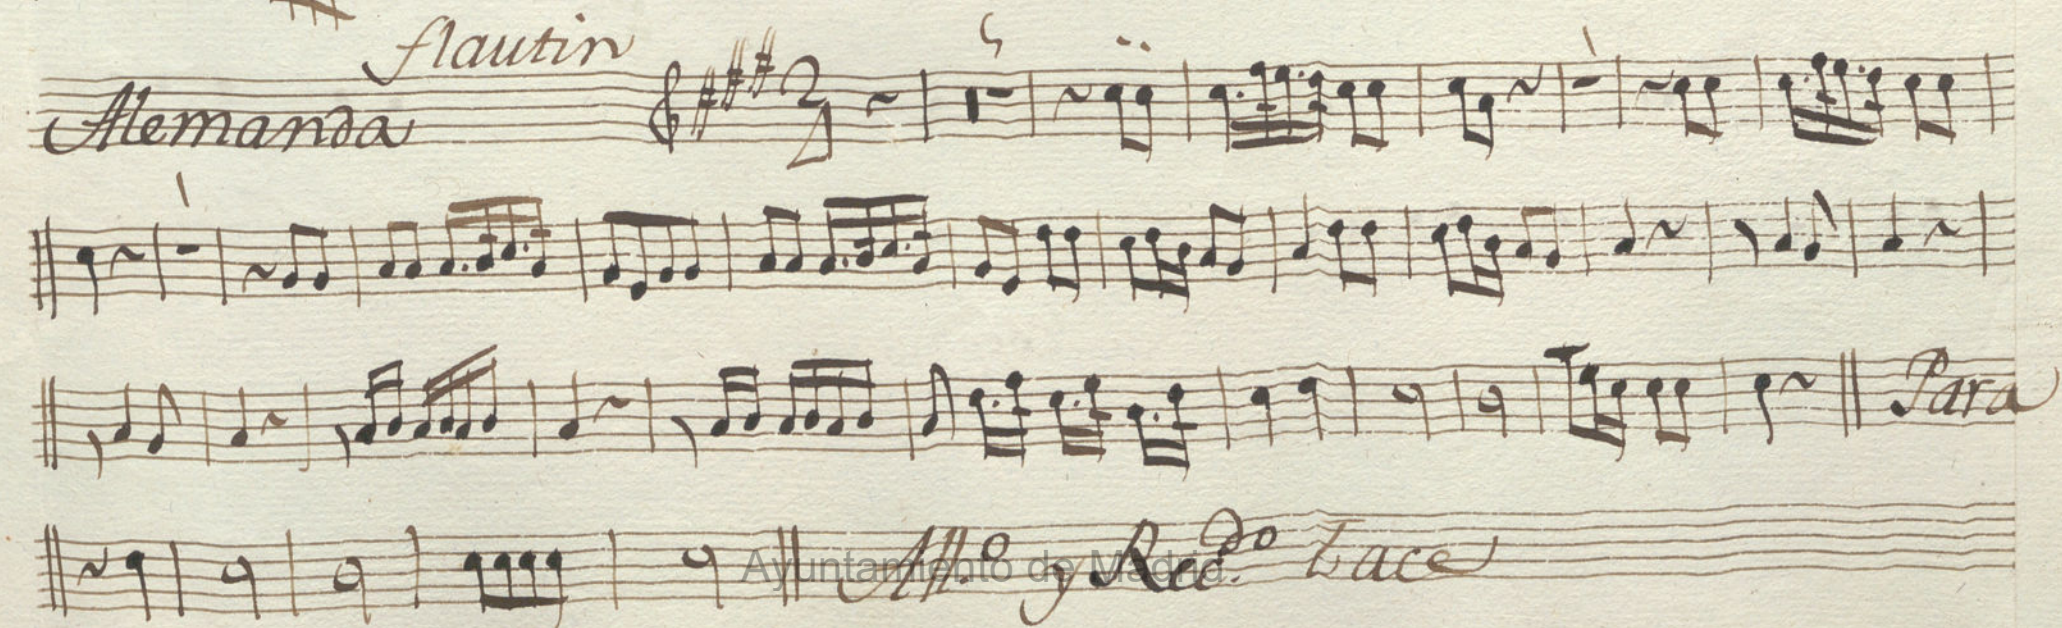 flautin
Alemanda
Para
All.º y Rec.do Tace
Ayuntamiento de Madrid